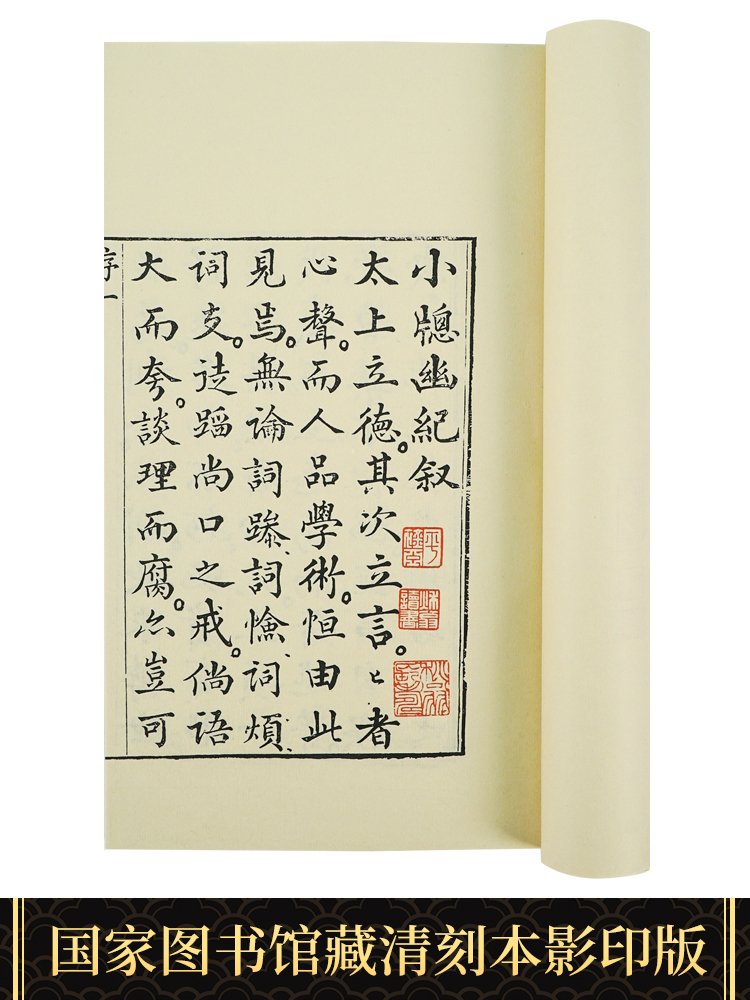 小牕幽紀叙
太上立德。其次立言。〻者
心聲。而人品學術。恒由此
見焉。無論詞躁、詞憸、詞煩、
詞支。徒蹈尚口之戒。倘語
大而夸。談理而腐。亦豈可
序一
国家图书馆藏清刻本影印版